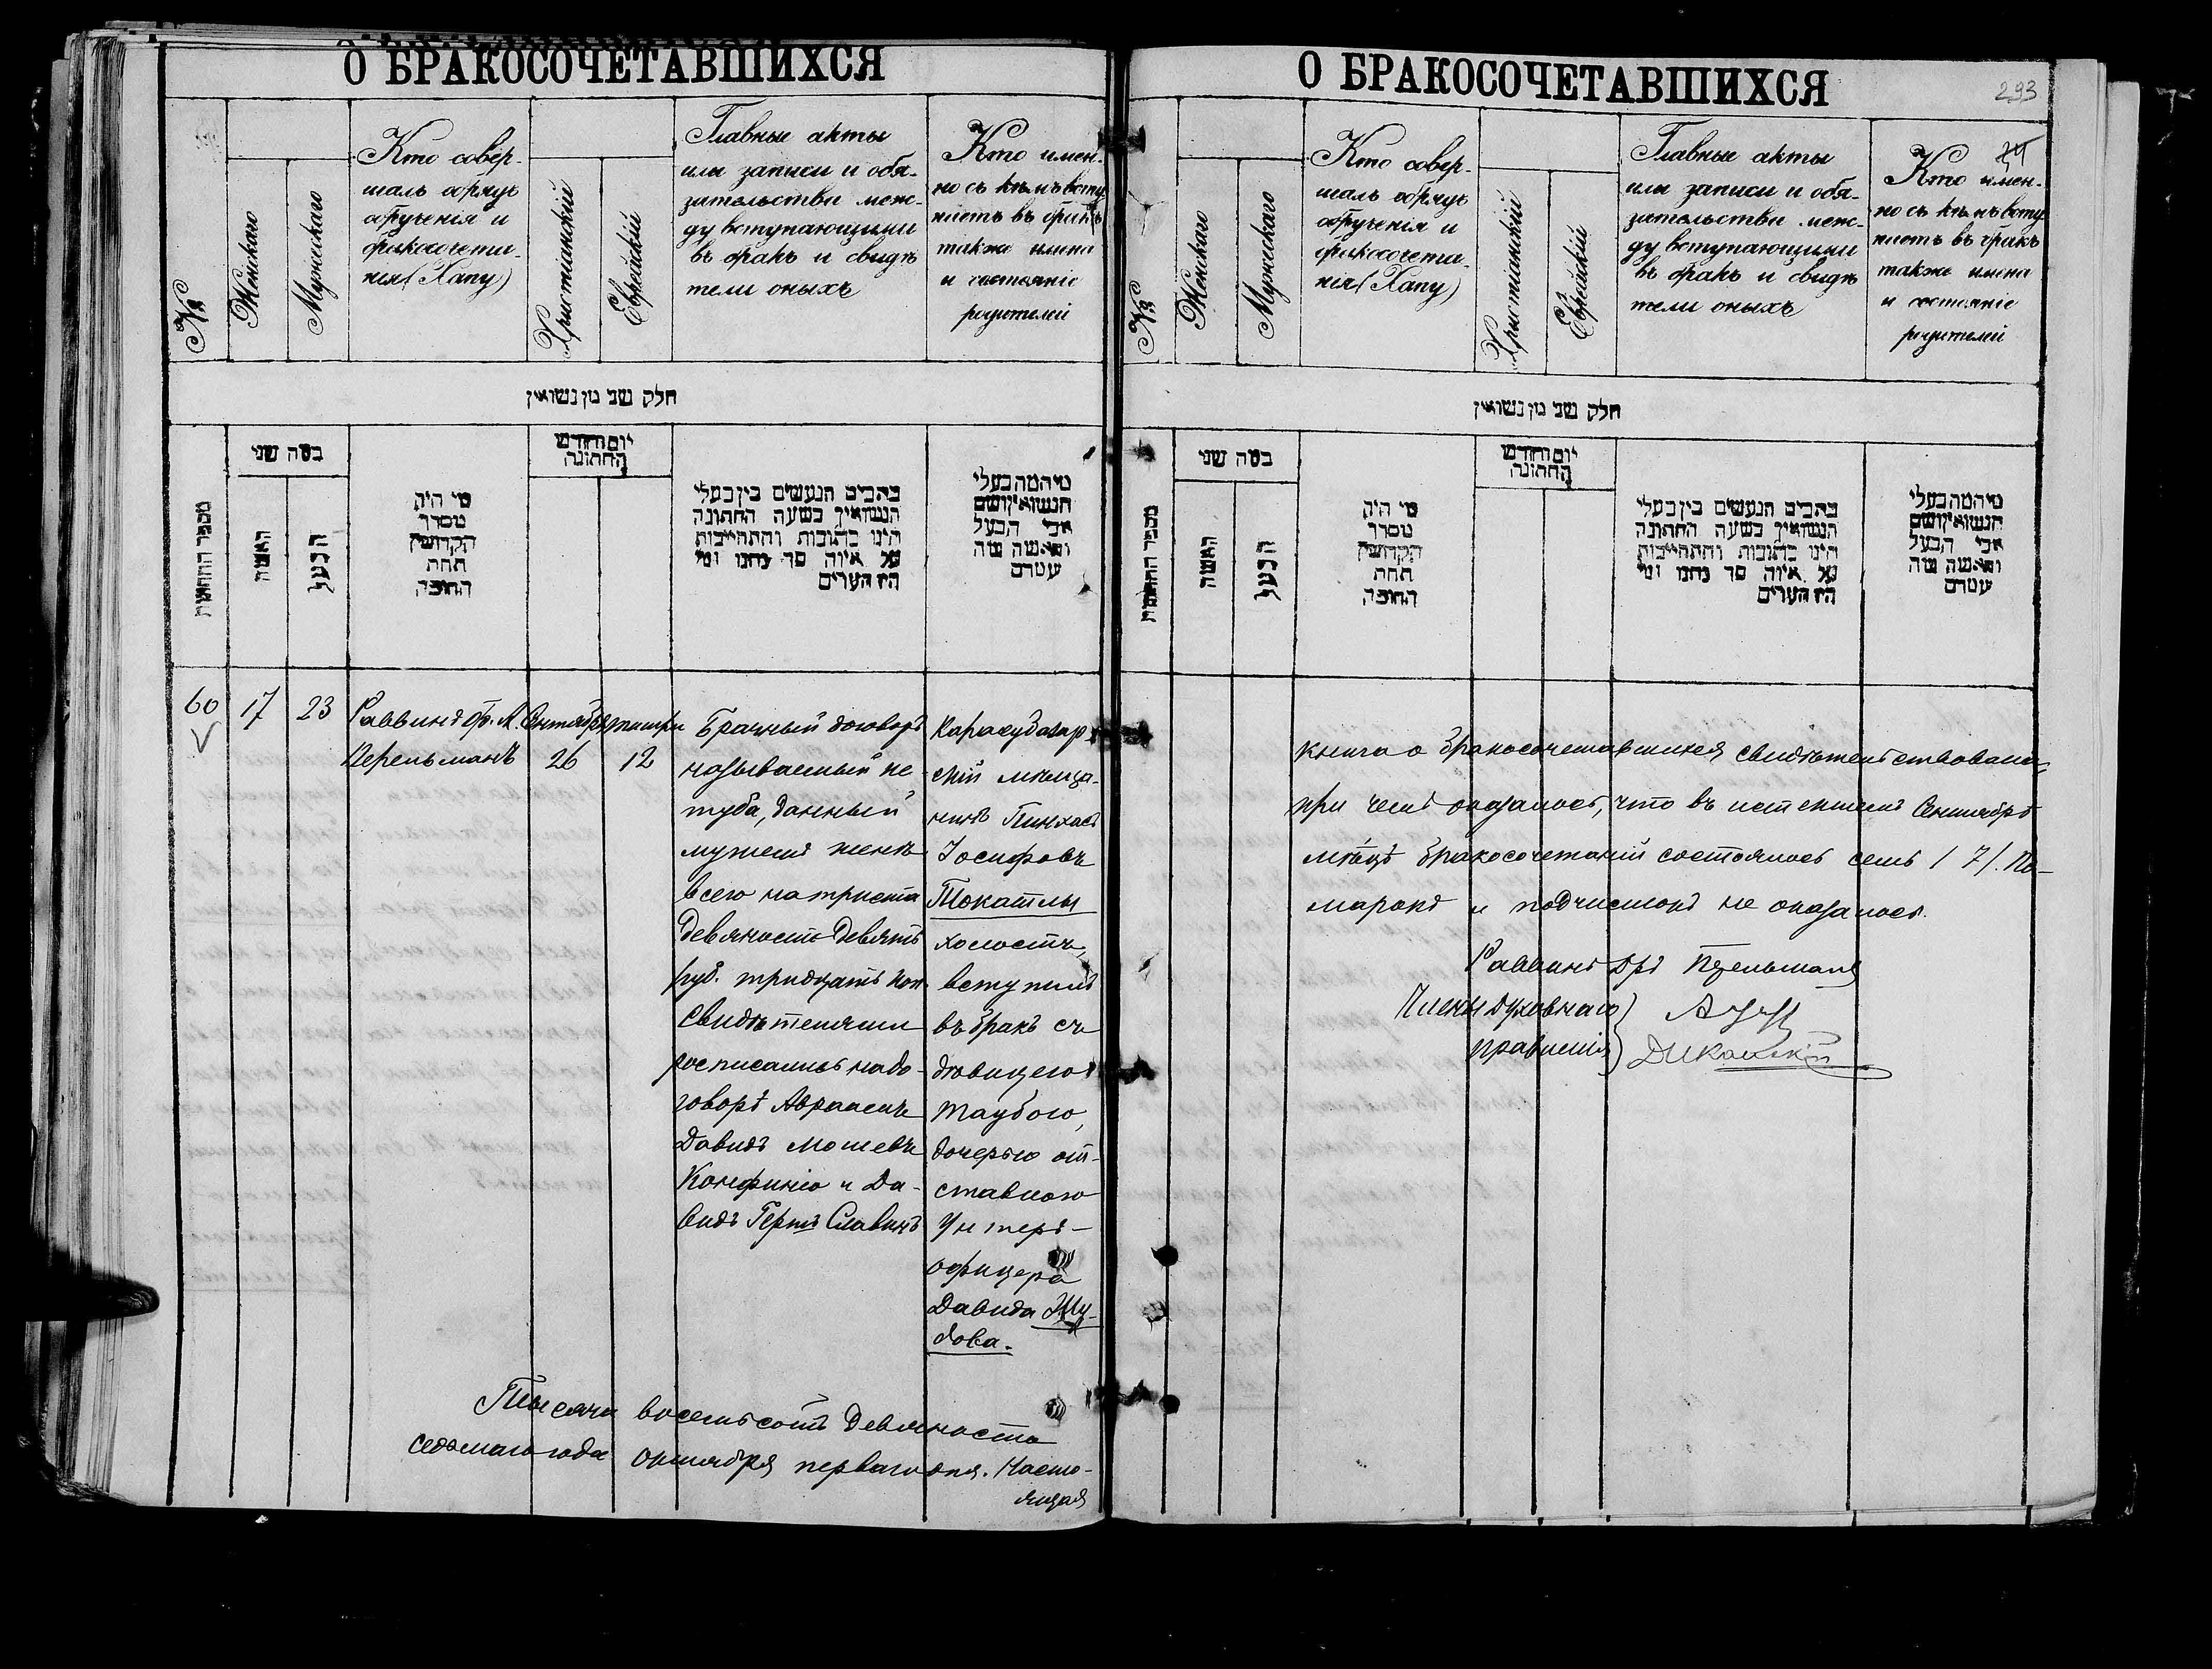 О БРАКОСОЧЕТАВШИХСЯ
№
Женскаго
Мужескаго
Кто совер-
шалъ обрядъ
обрученія и
бракосочета-
нія (Хапу)
Христіанскій
Еврейскій
Главные акты
или записи и обя-
зательства меж-
ду вступающими
въ бракъ и свидѣ
тели оныхъ
Кто имен-
но съ кѣмъ всту
паетъ въ бракъ
также имена
и состояніе
родителей
חלק שני מן נשואין
מספר החתונות
כמה שני
האשה
הבעל
מי היה
מסדר
הקדושין
תחת
החופה
יום וחודש
החתונה
כתבים הנעשים בין בעלי
הנשואין בשעה החתונה
היינו כתובות והתחייבות
על איזה סך נתנו ומי
היו העדים
מי המה בעלי
הנשואין ושם
אבי הבעל
והאשה מה
עמדם
60
17
23
Раввинъ Др. А.
Перельманъ
Сентября
26
тишри
12
Брачный договоръ
называемый ке-
туба, данный
мужемъ женѣ
всего на триста
девяносто девять
руб. тридцать коп.
Свидѣтелями
росписались на до-
говорѣ Авраамъ
Давидъ Мошевъ
Конфино и Да-
видъ Герць Славинъ
Карасубазар-
скій мѣща-
нинъ Пинхасъ
Іосифовъ
Токатлы
холостъ,
вступилъ
въ бракъ съ
дѣвицею
Таубою,
дочерью от-
ставного
Унтеръ-
офицера
Давида Жу-
дова.
Тысяча восемьсотъ девяносто
седьмаго года Октября перваго дня. Насто-
ящая
О БРАКОСОЧЕТАВШИХСЯ
293
24
№
Женскаго
Мужескаго
Кто совер-
шалъ обрядъ
обрученія и
бракосочета-
нія (Хапу)
Христіанскій
Еврейскій
Главные акты
или записи и обя-
зательства меж-
ду вступающими
въ бракъ и свидѣ
тели оныхъ
Кто имен-
но съ кѣмъ всту
паетъ въ бракъ
также имена
и состояніе
родителей
חלק שני מן נשואין
מספר החתונות
כמה שני
האשה
הבעל
מי היה
מסדר
הקדושין
תחת
החופה
יום וחודש
החתונה
כתבים הנעשים בין בעלי
הנשואין בשעה החתונה
היינו כתובות והתחייבות
על איזה סך נתנו ומי
היו העדים
מי המה בעלי
הנשואין ושם
אבי הבעל
והאשה מה
עמדם
книга о бракосочетавшихся свидѣтельствована,
при чемъ оказалось, что въ истекшемъ Сентябрѣ
мѣсяцѣ бракосочетаній состоялось семь (7). По-
марокъ и подчистокъ не оказалось.
Раввинъ Дръ Перельманъ
Члены духовнаго
правленія